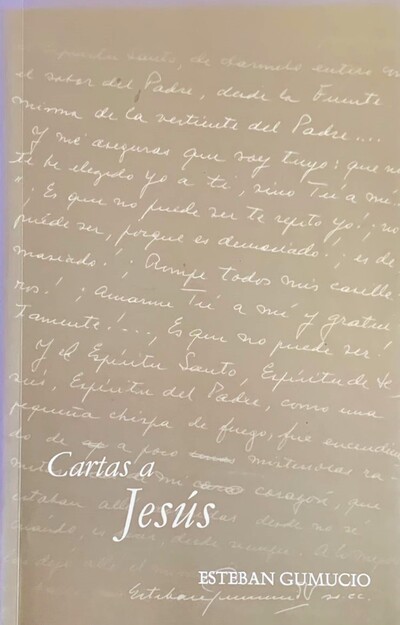 el sabor del Padre, desde la Fuente
misma de la vertiente del Padre....
Y me aseguras que soy tuyo: que no
te he elegido yo a ti, sino Tú a mí.
¡Es que no puede ser te repito yo!; no
puede ser, porque es demasiado!; es de
masiado!; ¡Rompe todos mis casille
ros!; ¡Amarme Tú a mí y gratui
tamente!..., Es que no puede ser!
Y el Espíritu Santo, Espíritu de Je
sús, Espíritu del Padre, como una
pequeña chispa de fuego, fue encendien
do de a poco misteriosas ra
mi corazón, que
estaban desde no se
cuando,
Cartas a
Jesús
ESTEBAN GUMUCIO
Esteban Gumucio ss.cc.